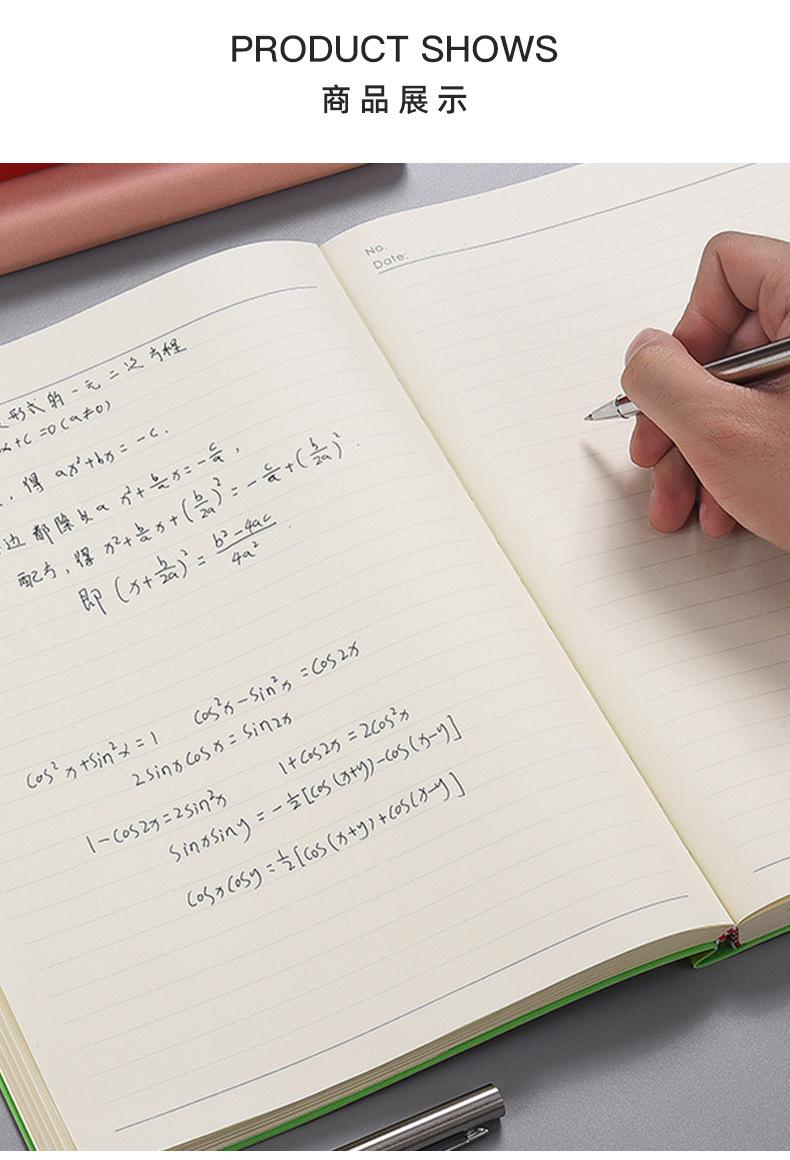 PRODUCT SHOWS
商品展示
No.
Date:
形式的一元二次方程
x+c=0(a≠0)
,得 ax²+bx=-c.
边都除以a x²+b/a x=-c/a,
配方,得 x²+b/a x+(b/2a)²=-c/a+(b/2a)².
即 (x+b/2a)²=b²-4ac/4a².
cos²x+sin²x=1 cos²x-sin²x=cos2x
2sinxcosx=sin2x
1-cos2x=2sin²x 1+cos2x=2cos²x
sinxsiny=-1/2[cos(x+y)-cos(x-y)]
cosxcosy=1/2[cos(x+y)+cos(x-y)]